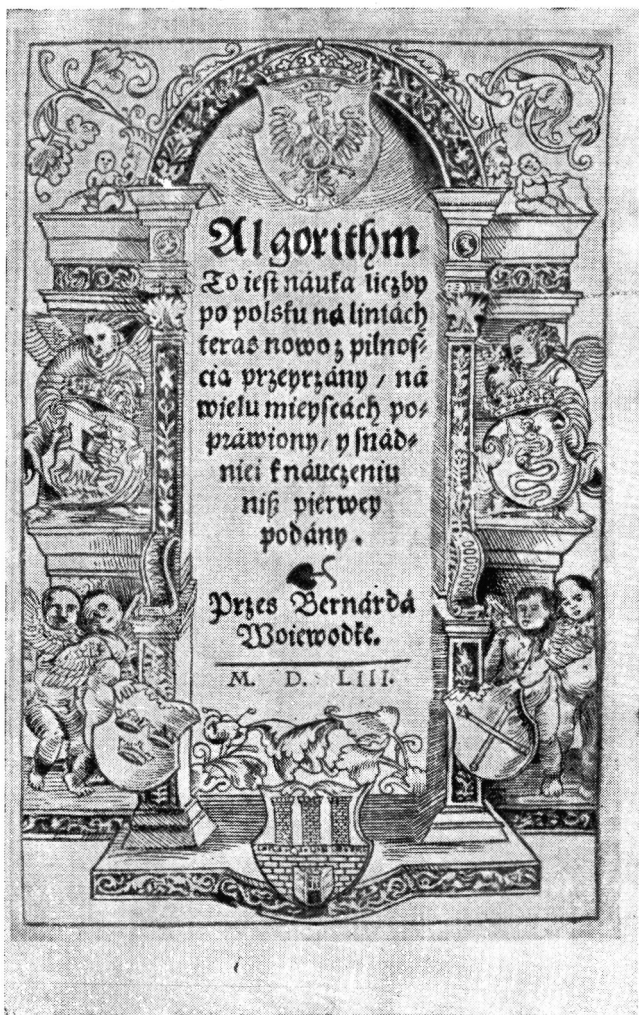 Algorithm
To iest náuka liczby
po polsku ná liniách
teras nowo z pilnos⸗
cia przeyrzány / ná
wielu mieyscách po⸗
práwiony / y snád⸗
niei knáuczeniu
niß pierwey
podány.
Przes Bernárdá
Woiewodke.
M. D. LIII.